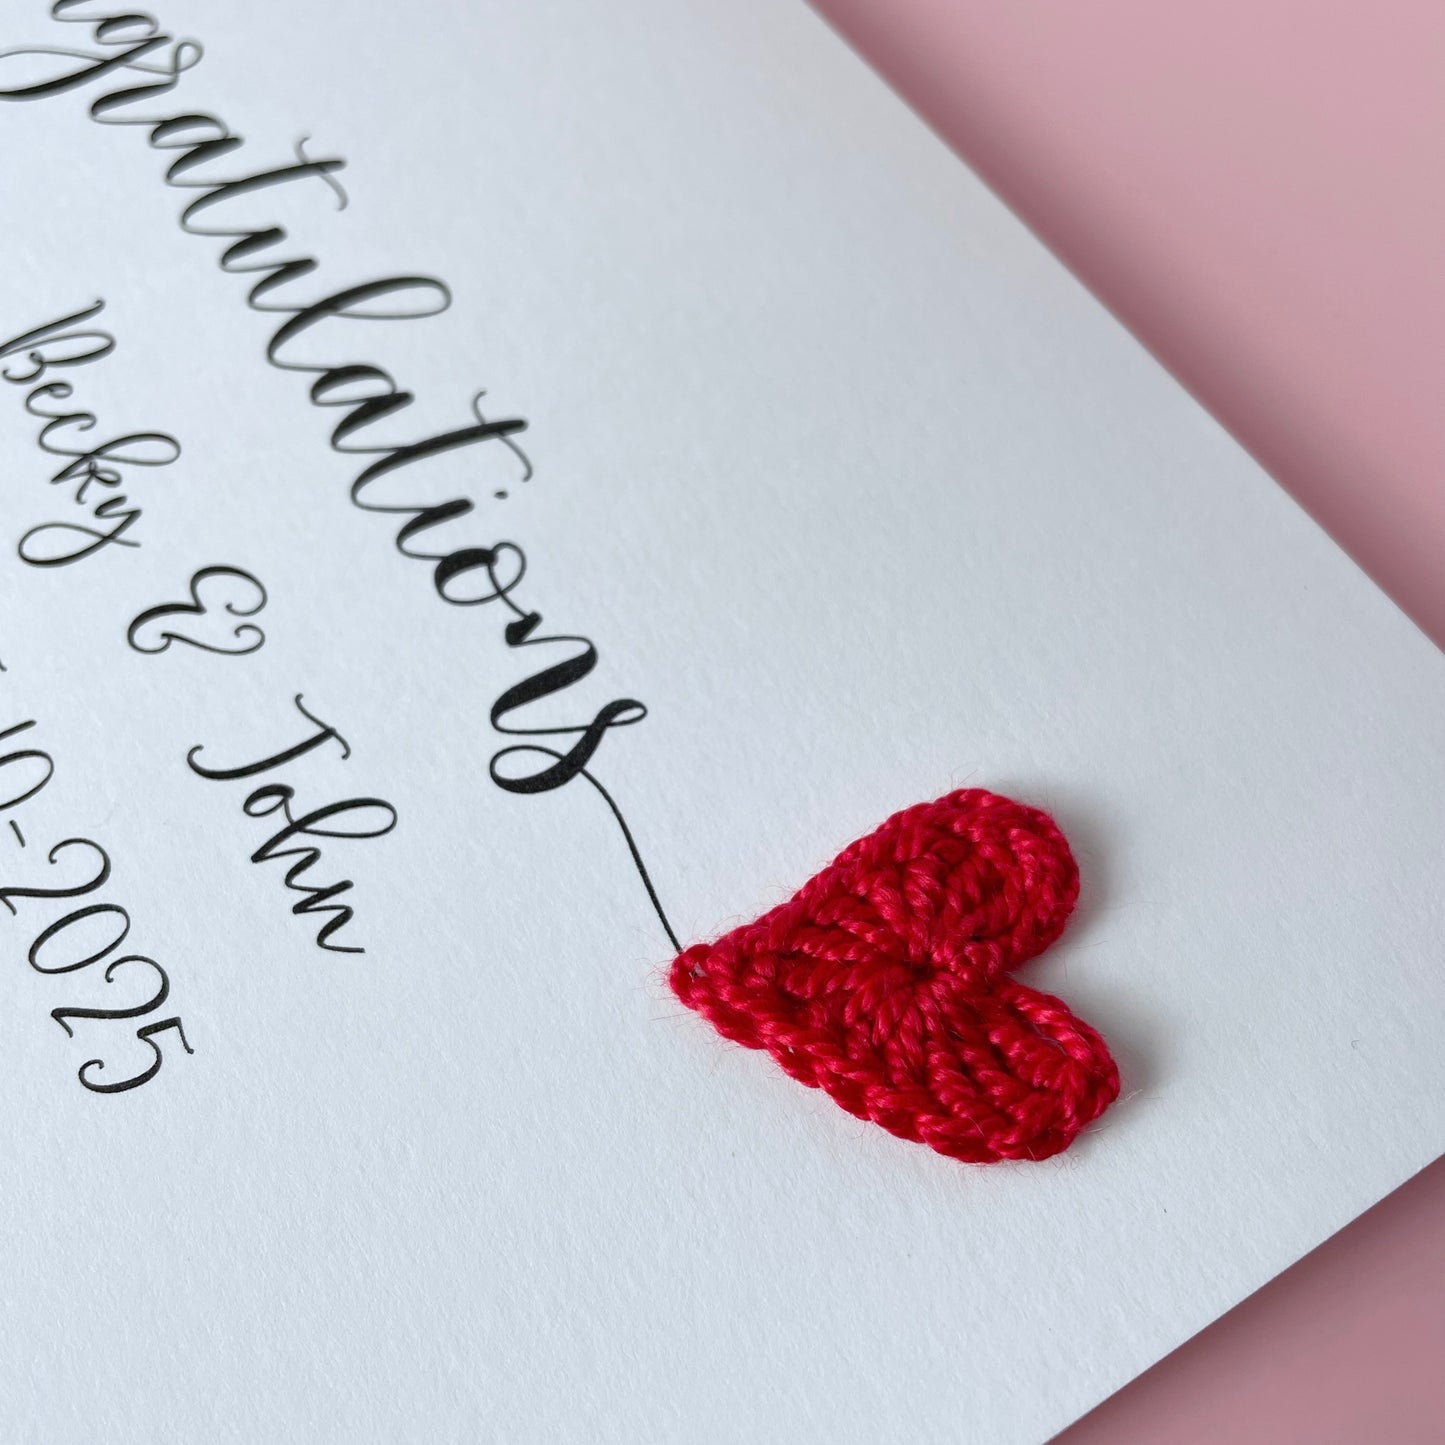 ngratulations
Becky & John
10-2025